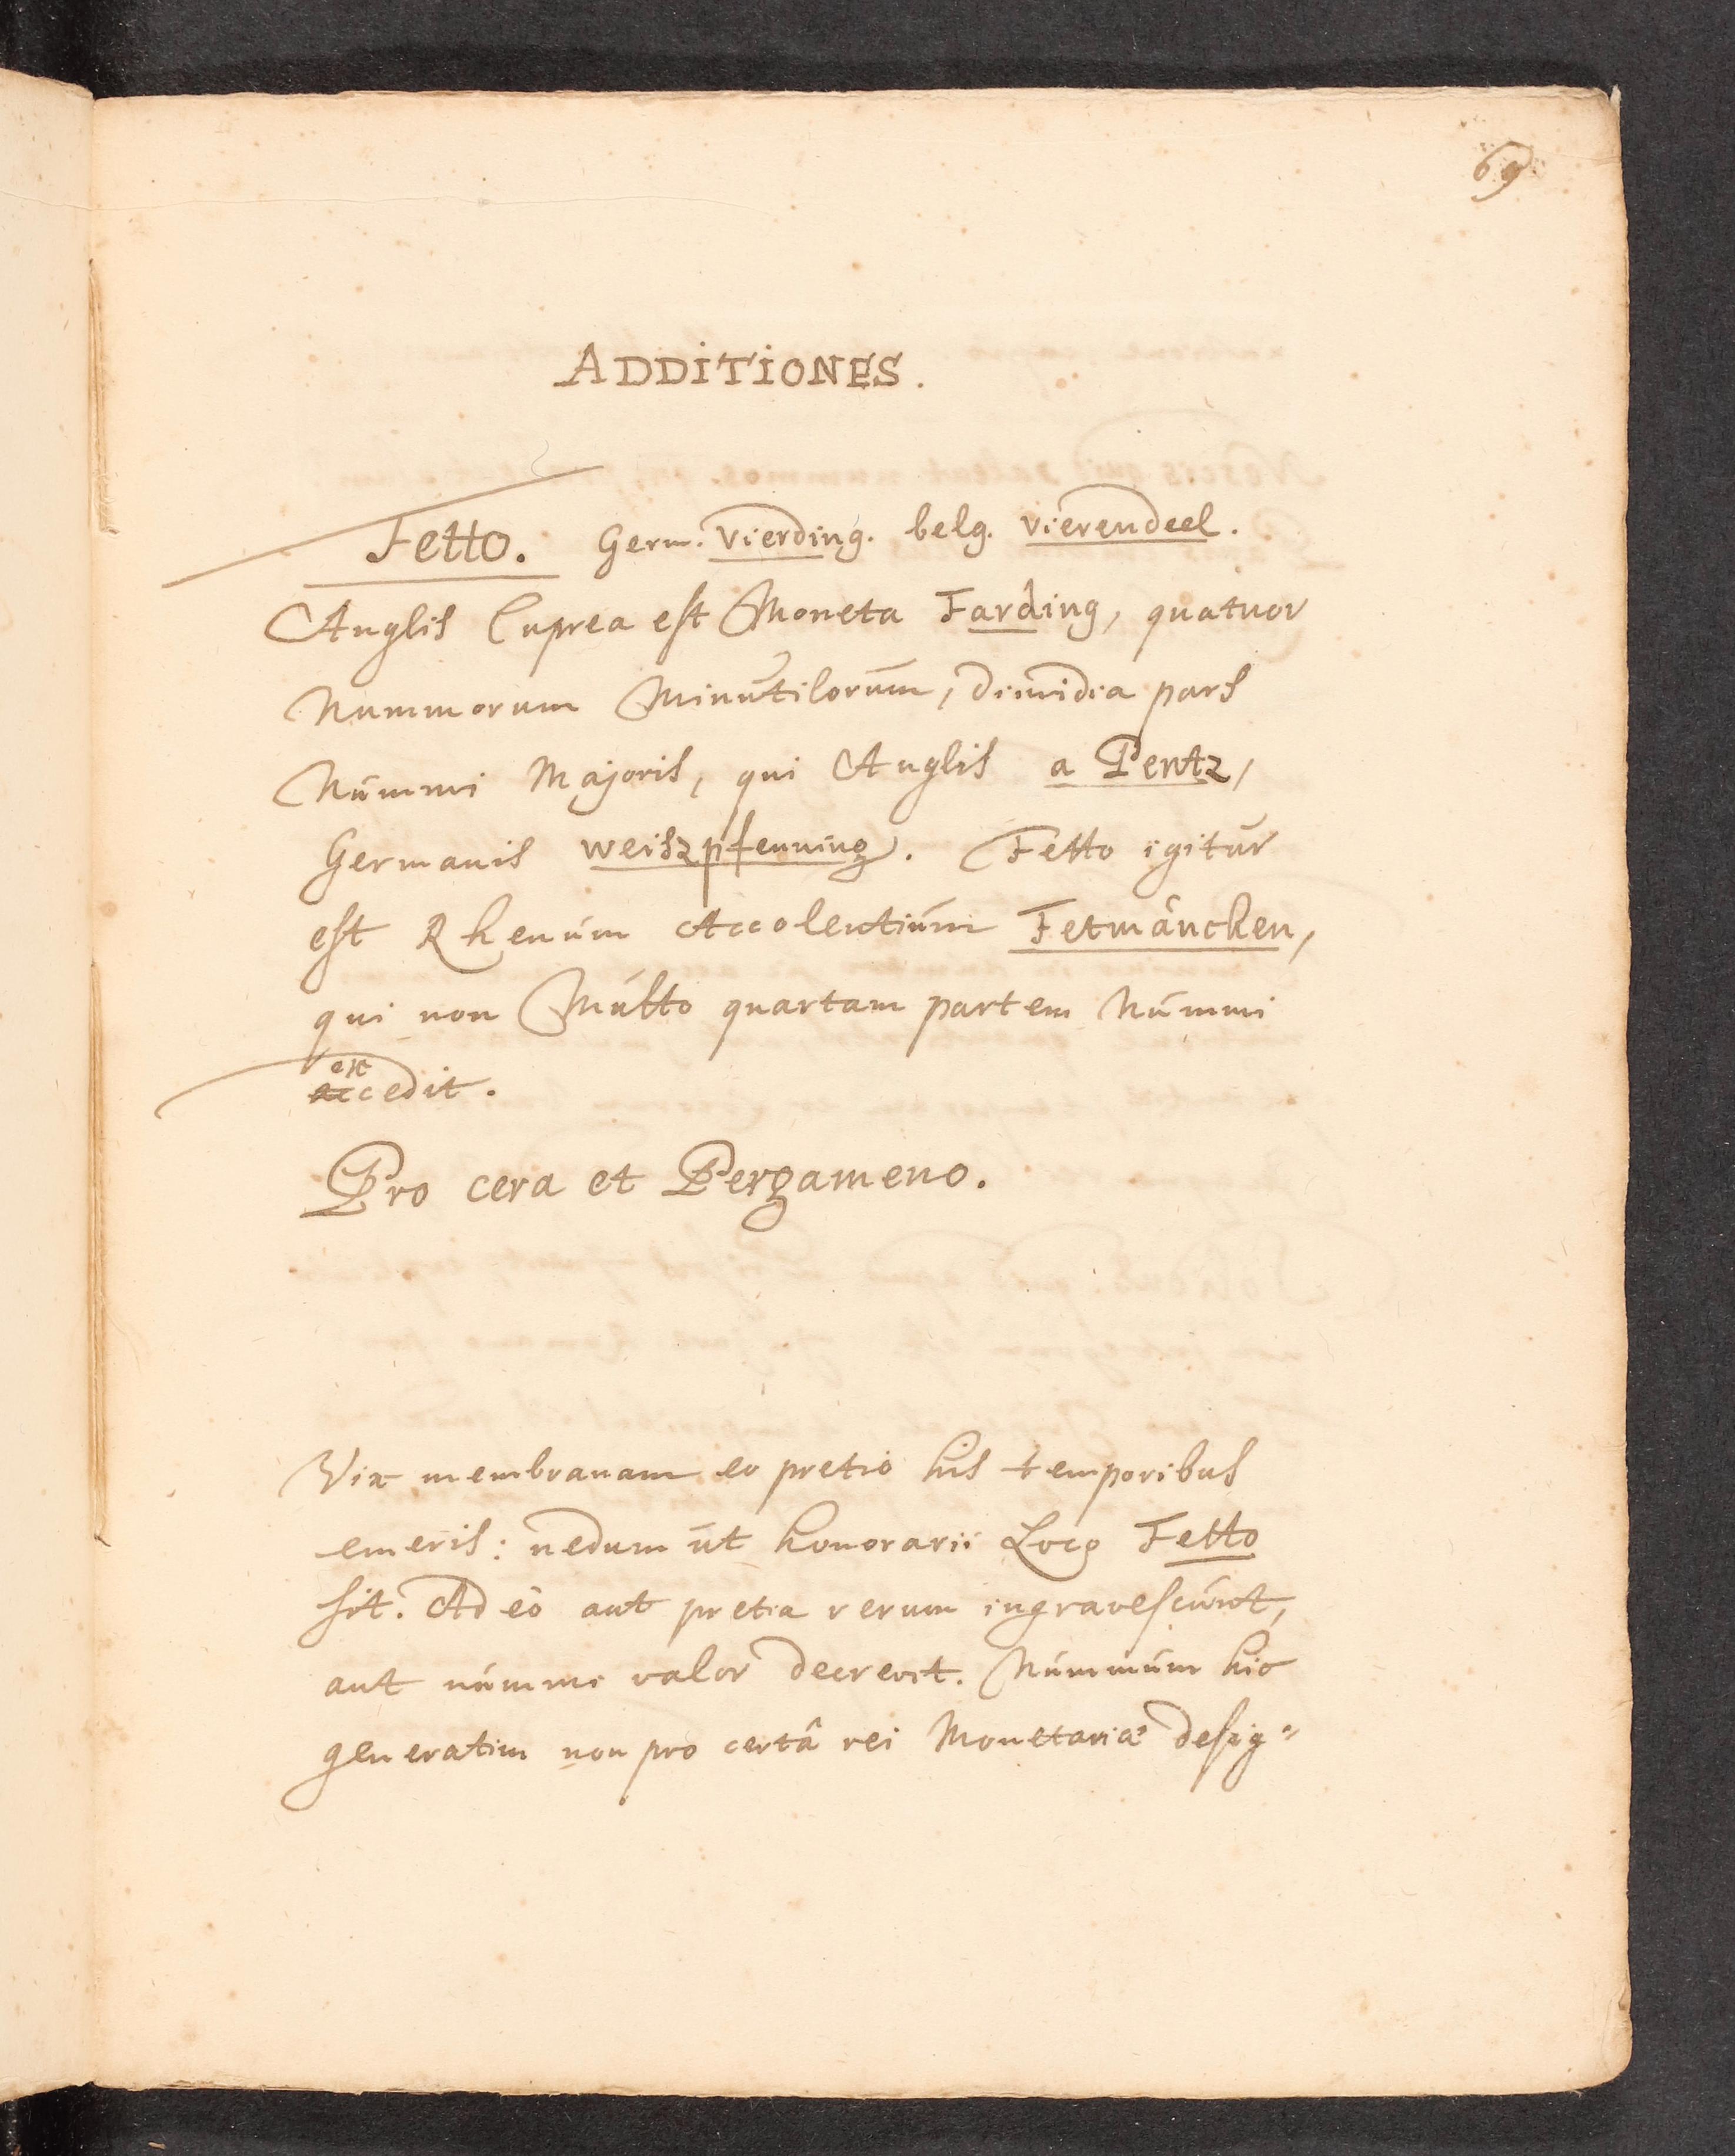 69
ADDITIONES.
Fetto. Germ. Vierding. belg. vierendeel.
Anglis Cuprea est Moneta Farding, quatuor
Nummorum Minutilorum, dimidia pars
Nummi Majoris, qui Anglis a Pentz,
Germanis weiszpfenning. Fetto igitur
est Rhenum Accolentium Fetmäncken,
qui non Multo quartam partem Nummi
ex
accedit.
Pro cera et Pergameno.
Vix membranam eo pretio his temporibus
emeris: nedum ut honorarii Loco Fetto
sit. Adeo aut pretia rerum ingravescunt,
aut nummi valor decrevit. Nummum hic
generatim non pro certâ rei Monetariæ desig=